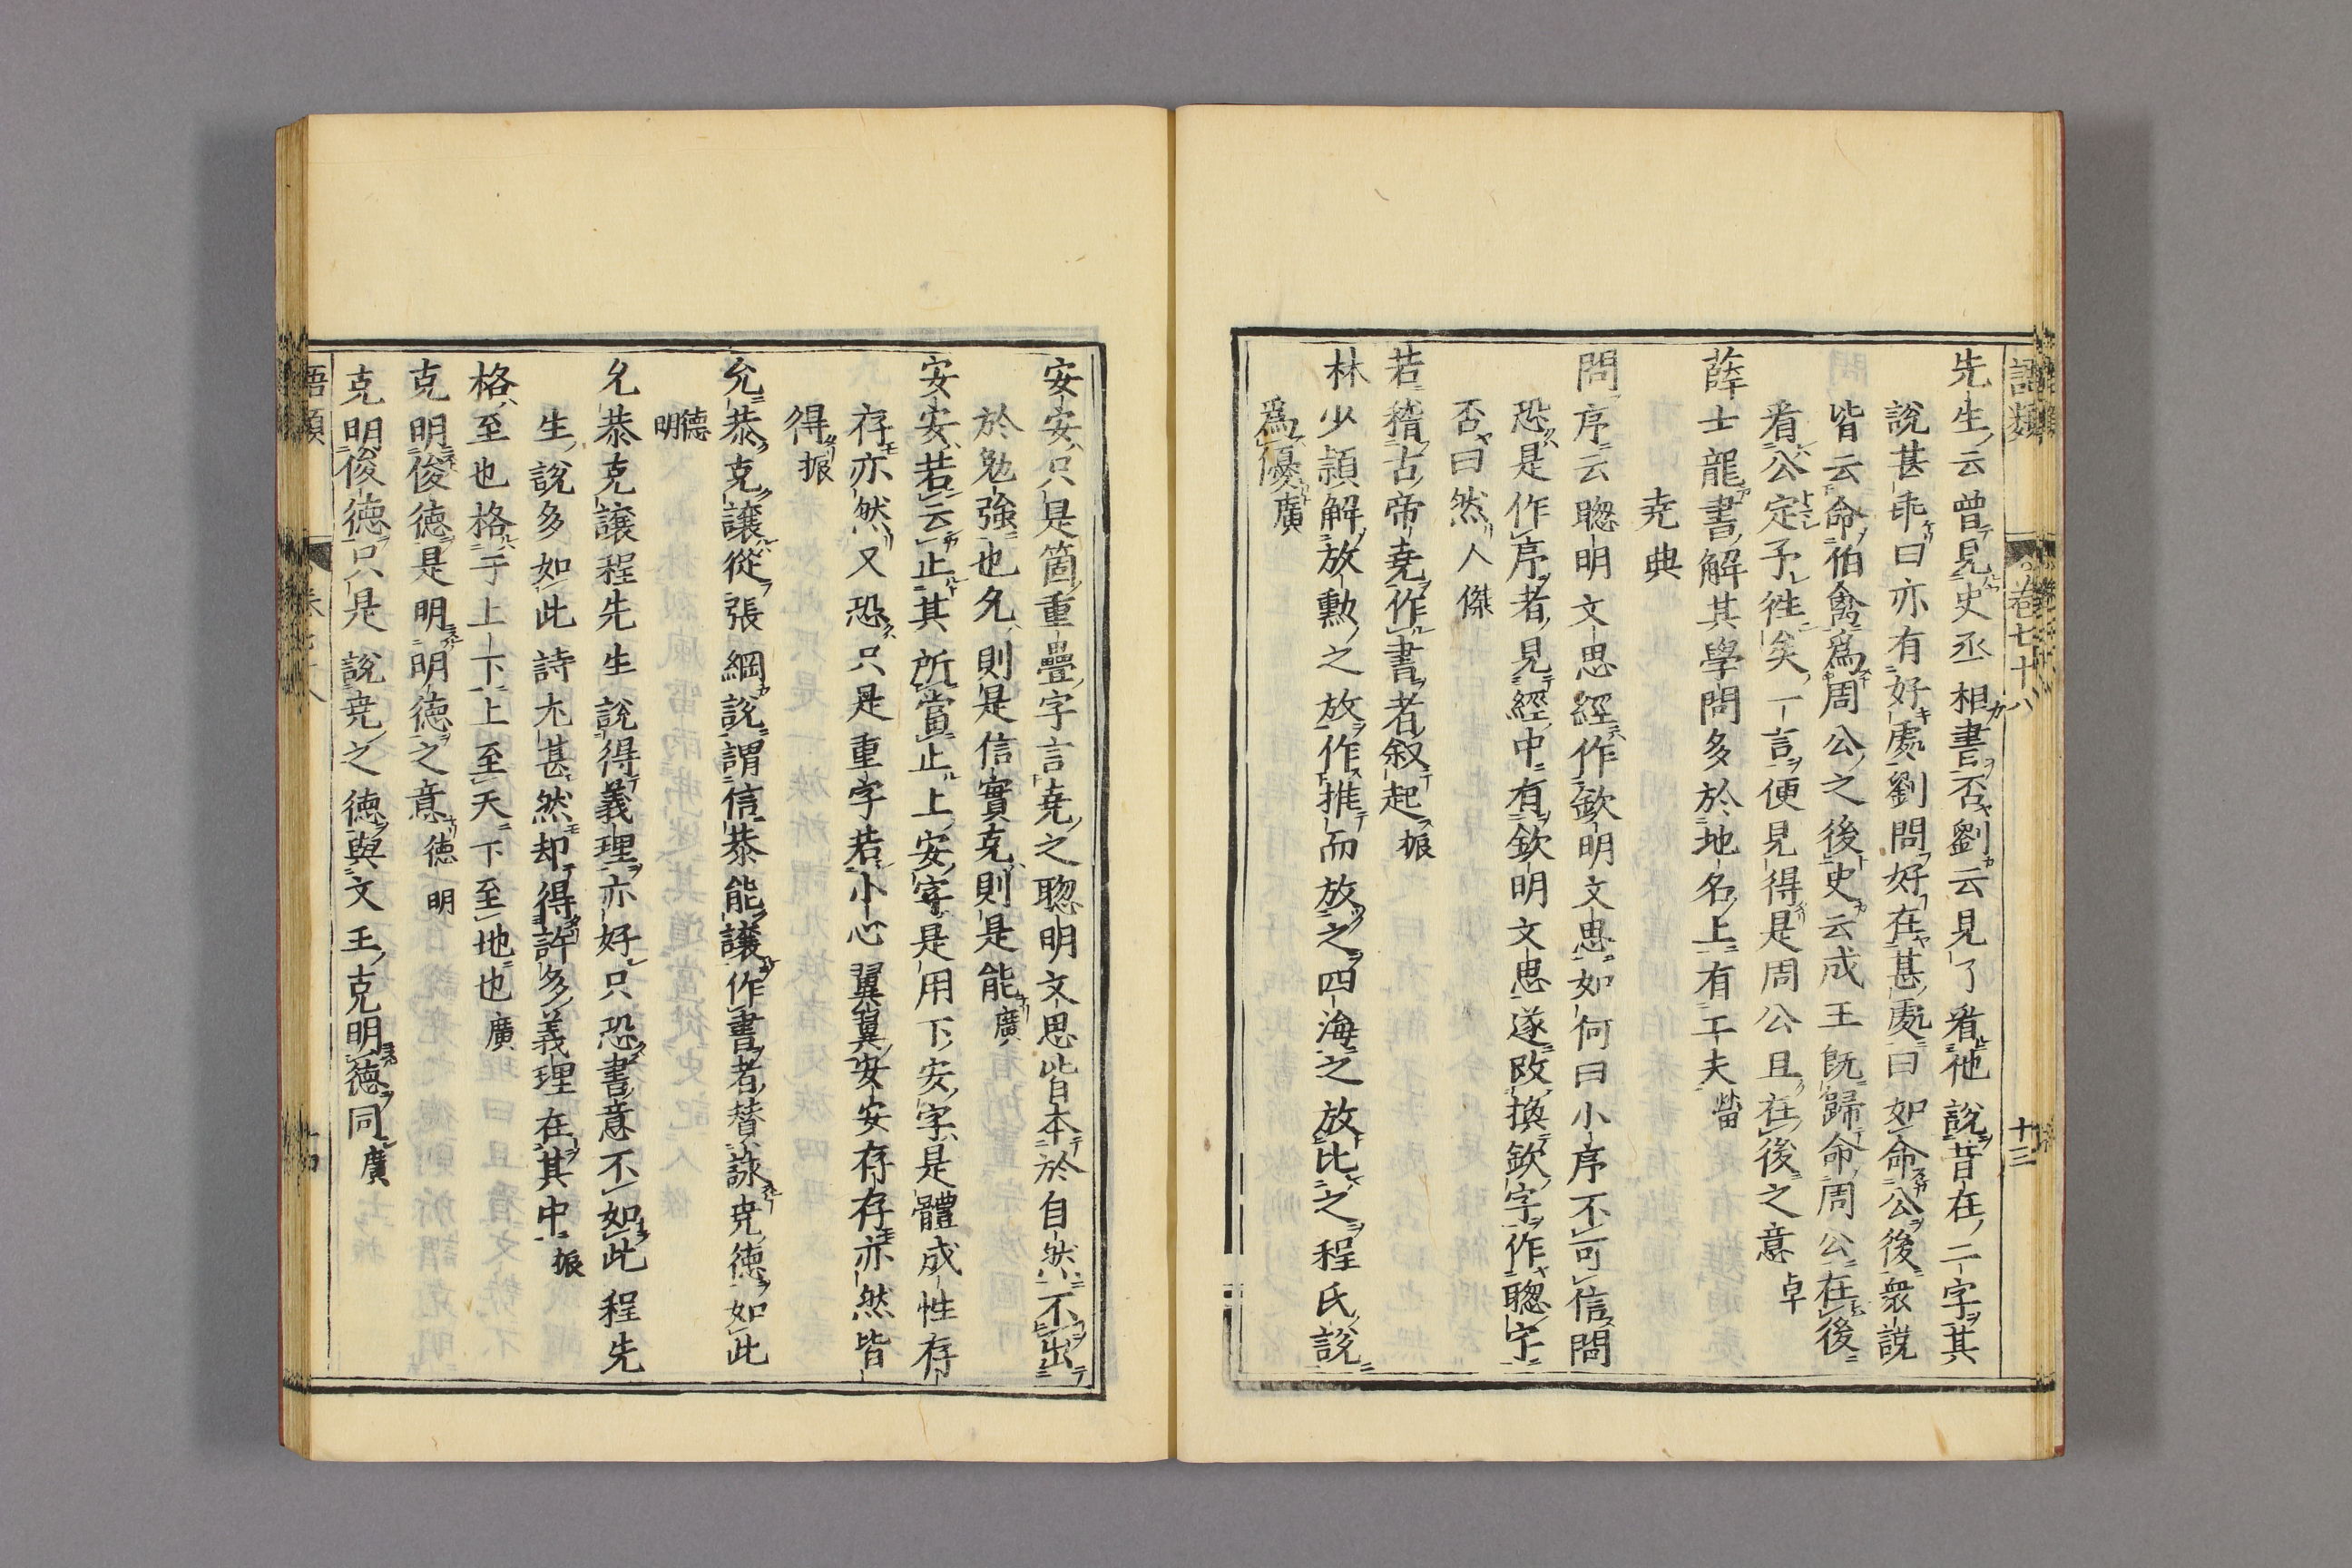 語類
卷七十八
十三
先生云曾見史丞相書否劉云見了看他說昔在二字其
說甚乖曰亦有好處劉問好在甚處曰如命公後衆說
皆云命伯禽爲周公之後史云成王旣歸命周公在後
看公定予往矣一言便見得是周公且在後之意卓
薛士龍書解其學問多於地名上有工夫㽦
堯典
問序云聰明文思經作欽明文思如何曰小序不可信問
恐是作序者見經中有欽明文思遂改換欽字作聰字
否曰然人傑
若稽古帝堯作書者叙起振
林少頴解放勳之放作推而放之四海之放比之程氏說
爲優廣
安安只是箇重疊字言堯之聰明文思皆本於自然不出
於勉強也允則是信實克則是能廣
安安若云止其所當止上安字是用下安字是體成性存
存亦然又恐只是重字若小心翼翼安安存存亦然皆
得振
允恭克讓從張綱說謂信恭能讓作書者贊詠堯德如此
德明
允恭克讓程先生說得義理亦好只恐書意不如此程先
生說多如此詩尤甚然却得許多義理在其中振
格至也格于上下上至天下至地也廣
克明俊德是明明德之意德明
克明俊德只是說堯之德與文王克明德同廣
語類